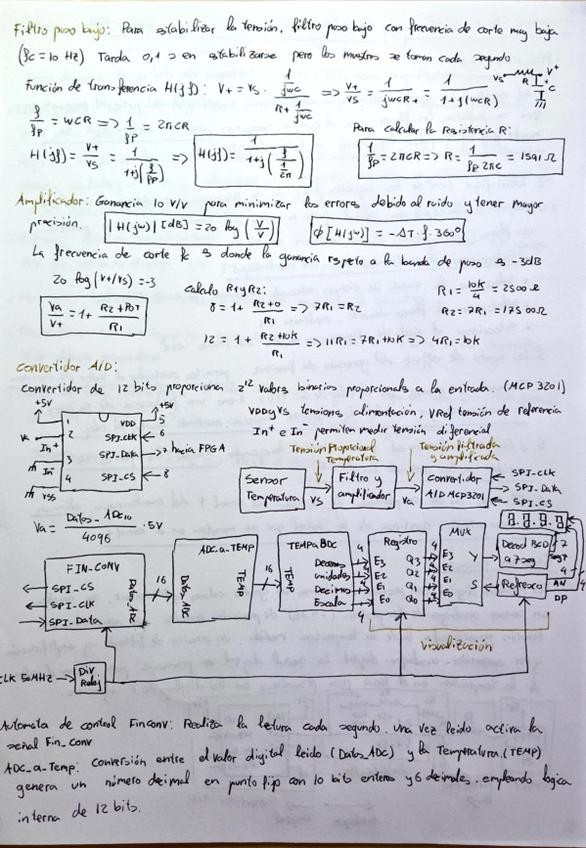 Filtro paso bajo: Para estabilizar la tensión, filtro paso bajo con frecuencia de corte muy baja
(fc=10 Hz) Tarda 0,1 s en estabilizarse pero las muestras se toman cada segundo
Función de transferencia H(jf): V+ = Vs · (1/jwc)/(R + 1/jwc) => V+/Vs = 1/(jwcR + 1) = 1/(1+j(wcR))
Vs R V+ C
f/fp = wcR => 1/fp = 2πcR
Para calcular la Resistencia R:
H(jf) = V+/Vs = 1/(1+j(f/fp)) => H(jf) = 1/(1+j(f/(1/2π)))
1/fp = 2πcR => R = 1/(fp 2πc) = 1591 Ω
Amplificador: Ganancia 10 V/V para minimizar los errores debido al ruido y tener mayor
precisión. |H(jw)| [dB] = 20 log (V/V) ϕ[H(jw)] = -ΔT · f · 360°
La frecuencia de corte fc es donde la ganancia respeto a la banda de paso es -3dB
20 log (V+/Vs) = -3
Calculo R1 y R2:
R1 = 10K/4 = 2500 Ω
Va/V+ = 1 + (R2+POT)/R1
8 = 1 + (R2+0)/R1 => 7R1 = R2
R2 = 7R1 = 17500Ω
12 = 1 + (R2+10K)/R1 => 11R1 = 7R1+10K => 4R1 = 10K
Convertidor A/D:
Convertidor de 12 bits proporciona 2^12 valores binarios proporcionales a la entrada. (MCP 3201)
VDD y Vs tensiones alimentación, VRef tensión de referencia
In+ e In- permiten medir tensión diferencial
+5V +5V
1 VDD 5
Va In+ 2 SPI-CLK 6
In- 3 SPI-Data 7 hacia FPGA
Vss 4 SPI-CS 8
Tensión Proporcional Temperatura
Tensión Filtrada y amplificada
Sensor Temperatura
Vs
Filtro y amplificador
Va
Convertidor A/D MCP3201
SPI-CLK
SPI-Data
SPI-CS
Va = Datos_ADC10/4096 · 5V
FIN-CONV
SPI-CS
SPI-CLK
SPI-Data
Datos_ADC
16
ADC-a-TEMP
Datos_ADC
TEMP
16
TEMPaBDC
TEMP
Decenas
unidades
Decimas
Escala
4
4
Registro
E3 Q3
E2 Q2
E1 Q1
E0 Q0
4
MUX
E3
E2
E1
E0
Y
S
8.8.8.8
Decod BCD a 7 seg
7
Refresco
4
AN
DP
visualización
CLK 50MHz
Div Reloj
Automata de control Finconv: Realiza la lectura cada segundo, una vez leido activa la
señal Fin_Conv
ADC_a_Temp: Conversión entre el valor digital leido (Datos_ADC) y la Temperatura.(TEMP)
genera un número decimal en punto fijo con 10 bits enteros y 6 decimales. empleando logica
interna de 12 bits.